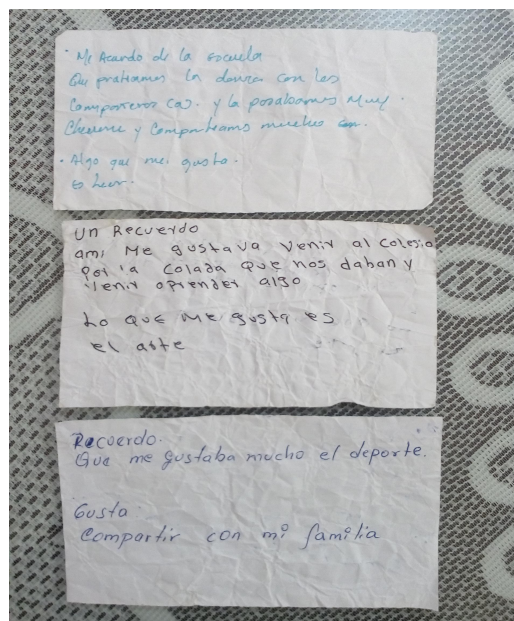 · Me Acuerdo de la escuela
Que pratiamos la danza con los
Compañeros (a). y la pasabamos Muy
Chevere y Compartiamos mucho
· Algo que me gusto.
es leer.
Un Recuerdo
ami Me gustava Venir al Colegio
por la Colada Que nos daban y
Venir aprender algo
Lo Que Me gusta es
el arte
Recuerdo.
Que me gustaba mucho el deporte.
Gusta
Compartir con mi familia